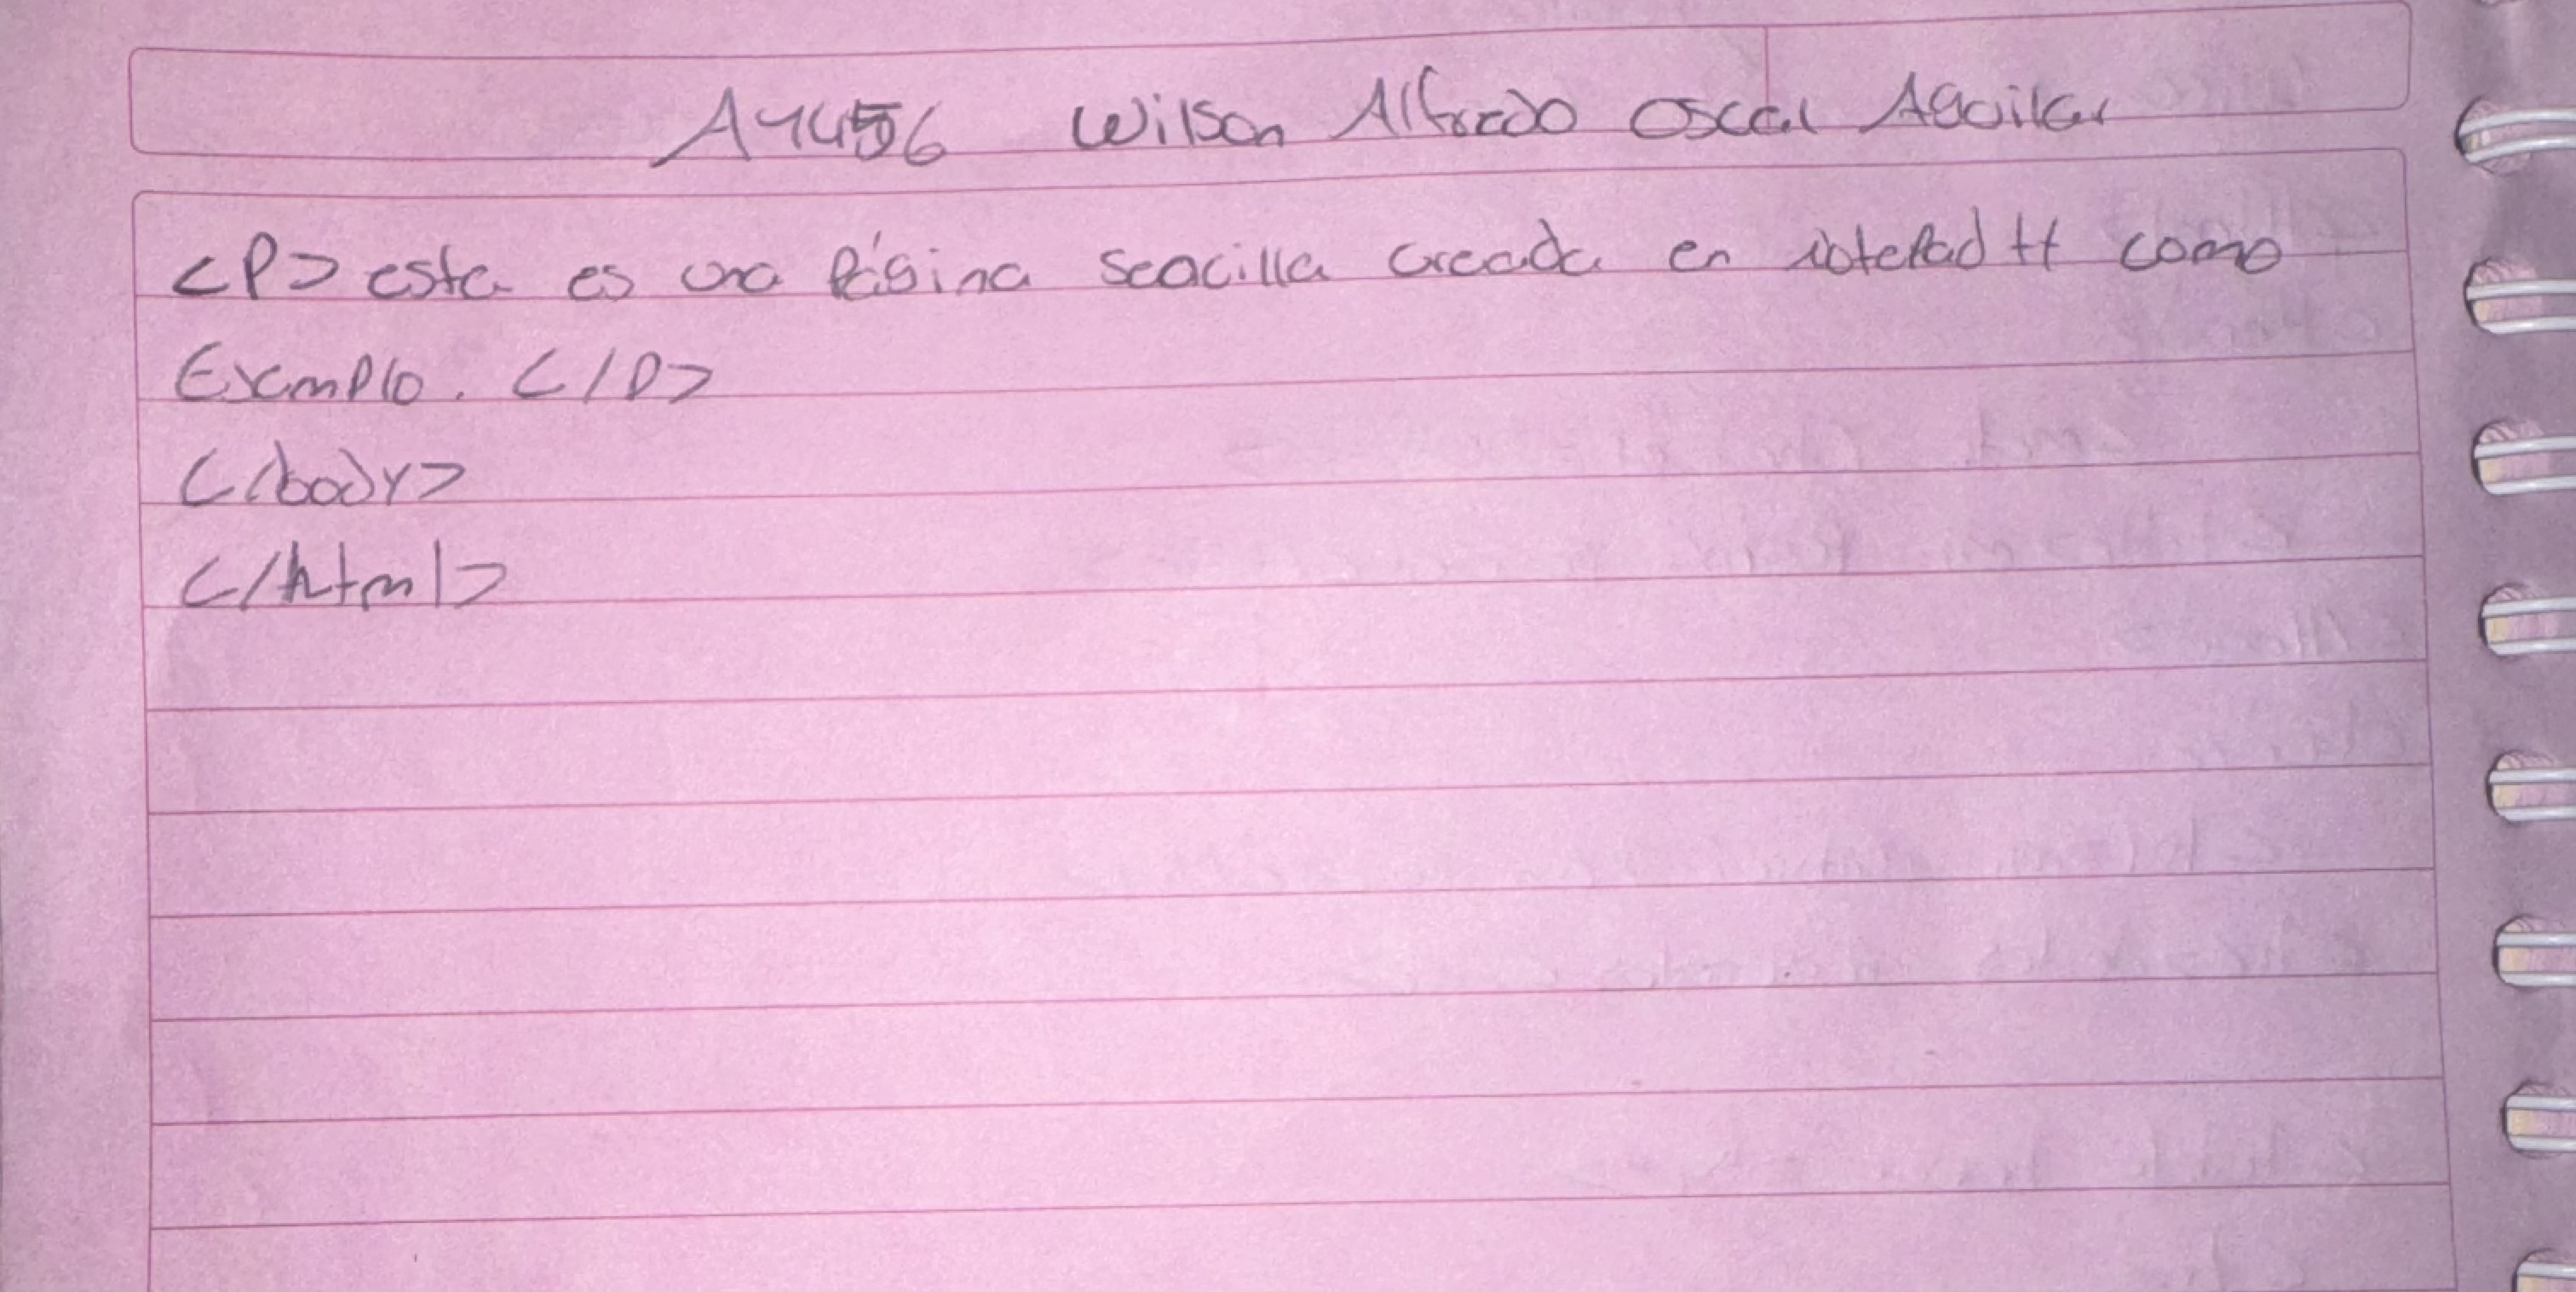 A1456 Wilson Alfredo Oscal Aguilar
<P> esta es una Página sencilla creada en notePad ++ como
ExemPlo. </P>
</body>
</html>